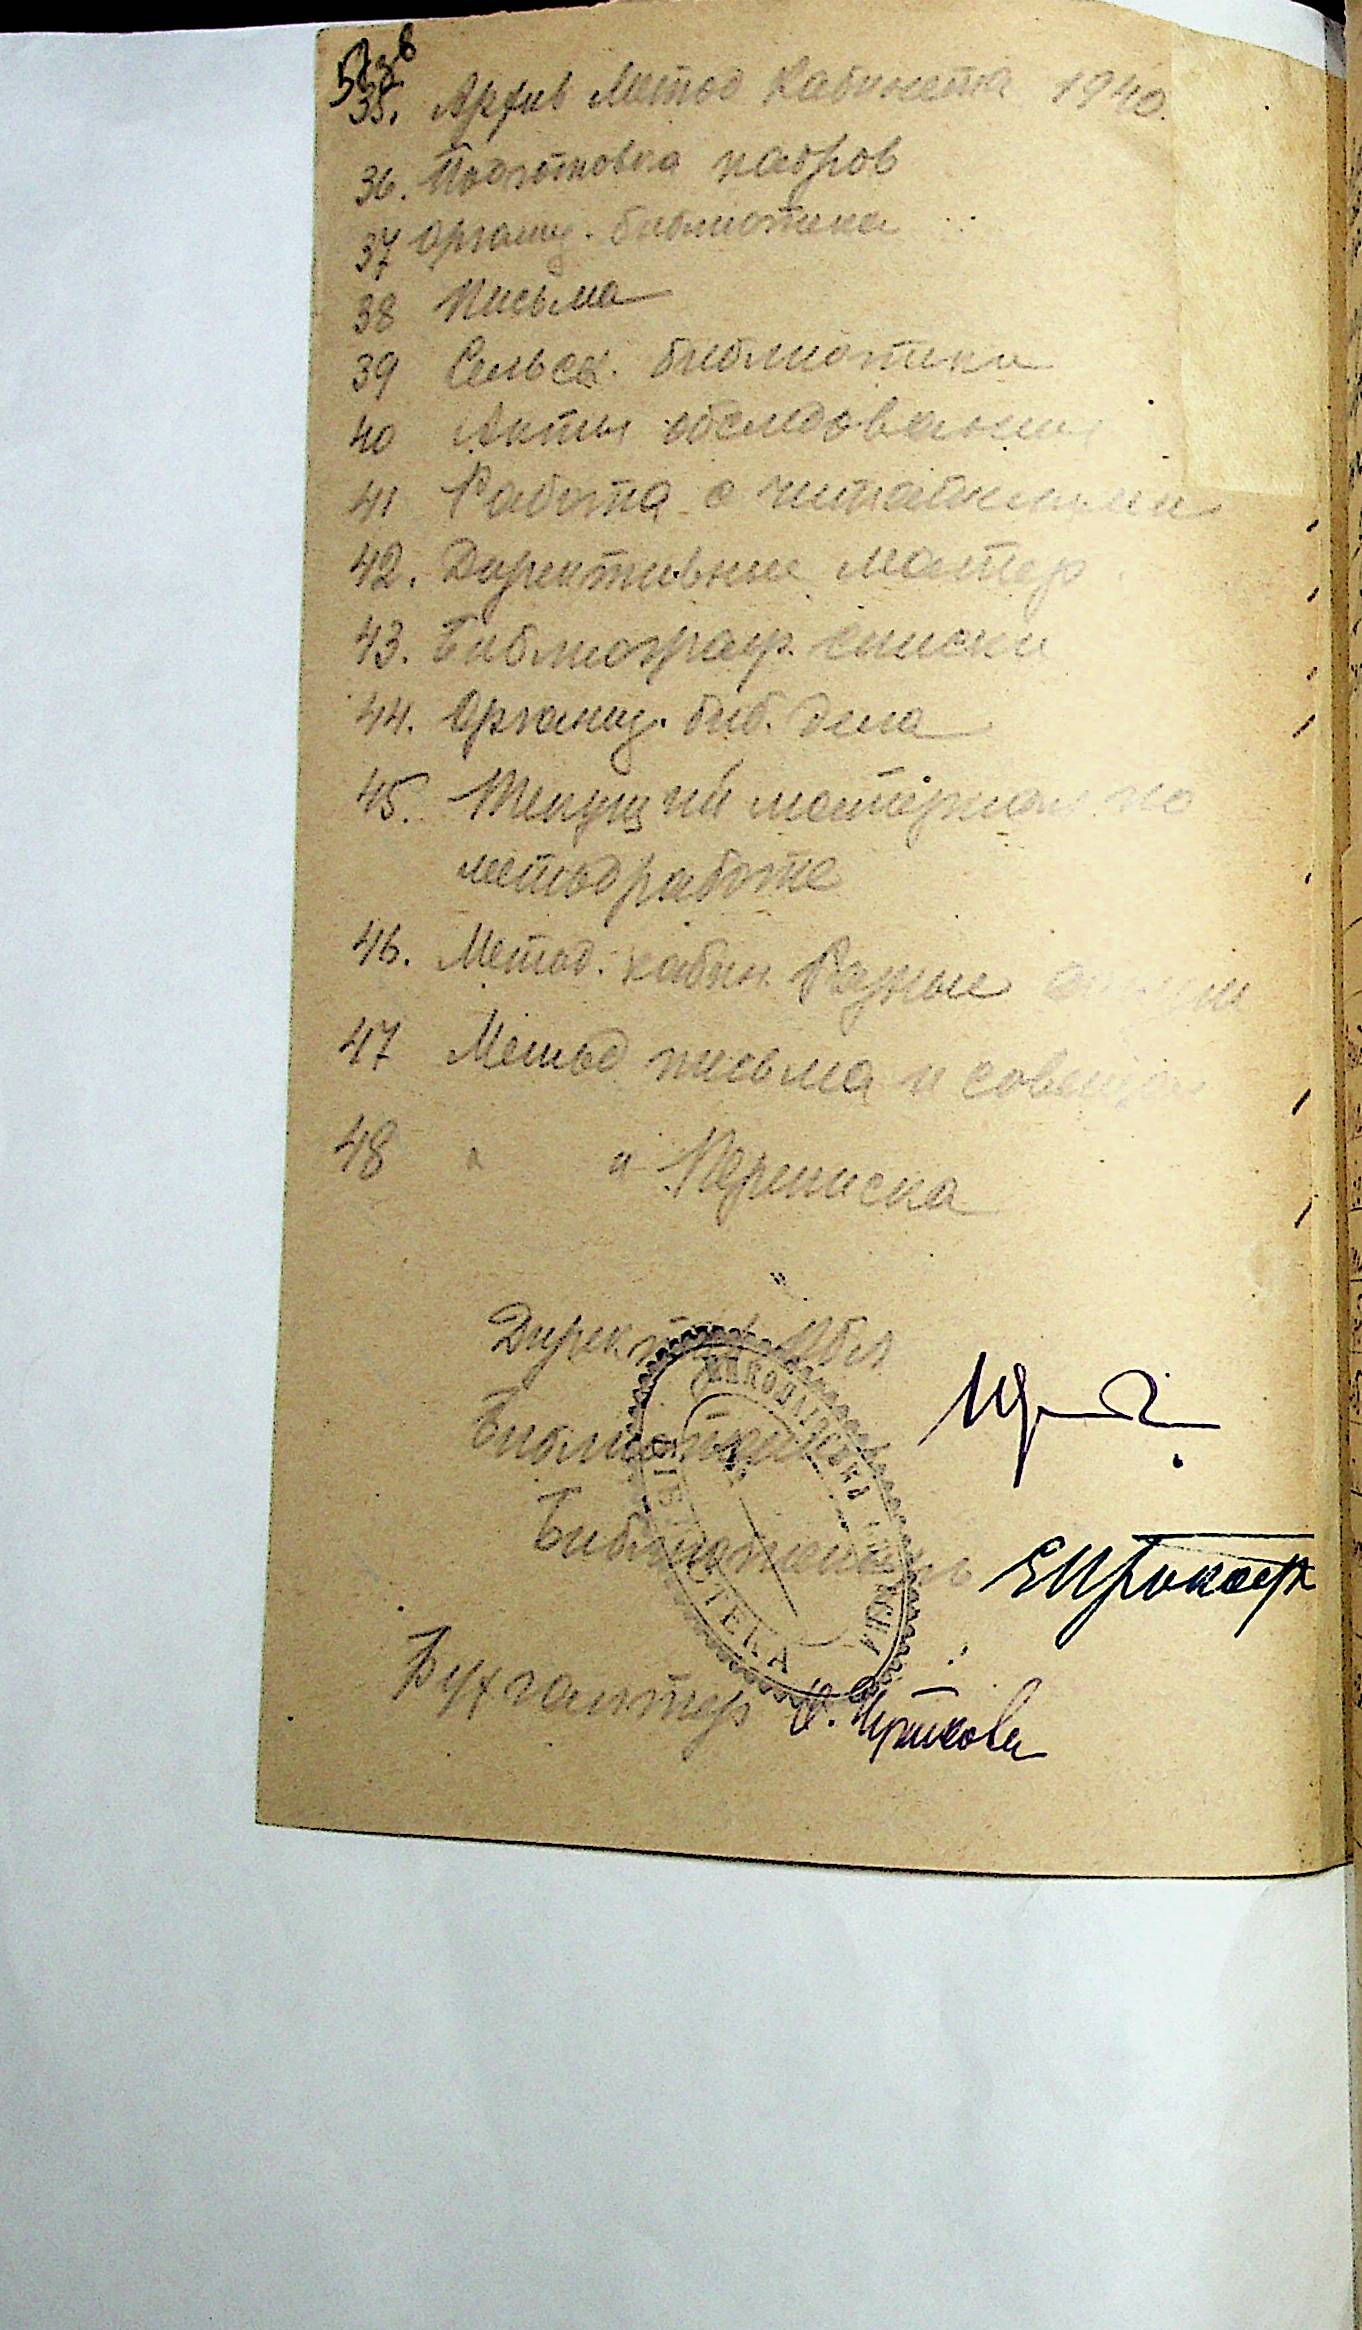 35. Архив Метод Кабинета 1940.
36. Подготовка кадров
37 Организ. библиотека
38 Письма
39 Сельск. библиотеки
40 Акты обследования
41 Работа с читателями
42. Директивные матер.
43. Библиограф. списки
44. Организ. биб. дела
45. Текущий материал по
методработе
46. Метод. кабин. Разные
47 Метод письма и
48 " " Переписка
Директор Обл
Библиотеки
Библиотекарь
Бухгалтер